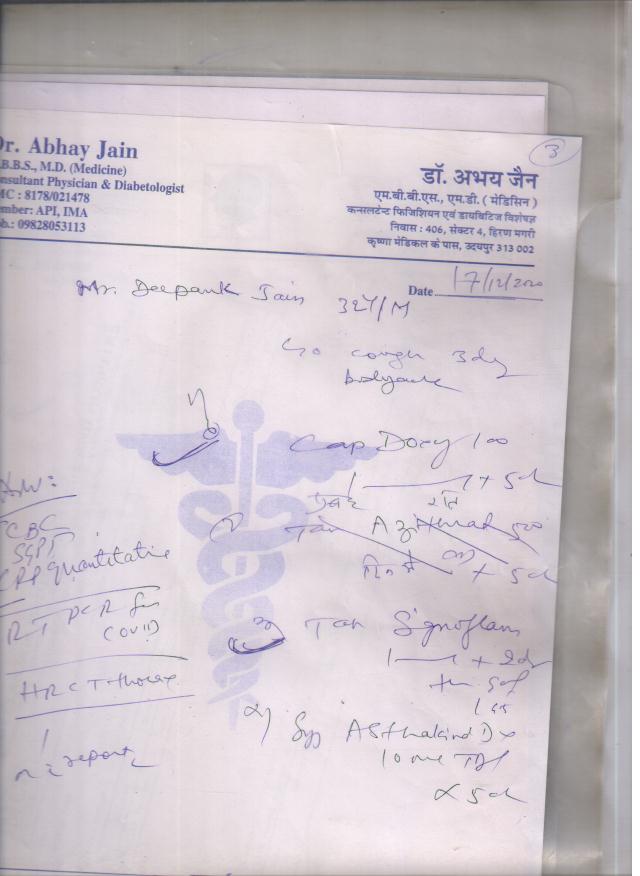 Dr. Abhay Jain
.B.B.S., M.D. (Medicine)
nsultant Physician & Diabetologist
MC : 8178/021478
ember: API, IMA
b.: 09828053113
3
डॉ. अभय जैन
एम.बी.बी.एस., एम.डी. ( मेडिसिन )
कन्सलटेन्ट फिजिशियन एवं डायबिटिज विशेषज्ञ
निवास : 406, सेक्टर 4, हिरण मगरी
कृष्णा मेडिकल के पास, उदयपुर 313 002
Date 17/12/2020
Mr. Deepank Jain 32Y/M
cough 3day
bodyache
Cap Doxy 100
1 + 5d
सुबह रात
Tab Azithral 500
दिन में + 5d
Tab Signoflam
1 + 2d
Syp Asthakind Dx
10 ml TDS
x 5d
Adv:
CBC
SGPT
CRP quantitative
RT PCR for
COVID
HRCT thorax
reports